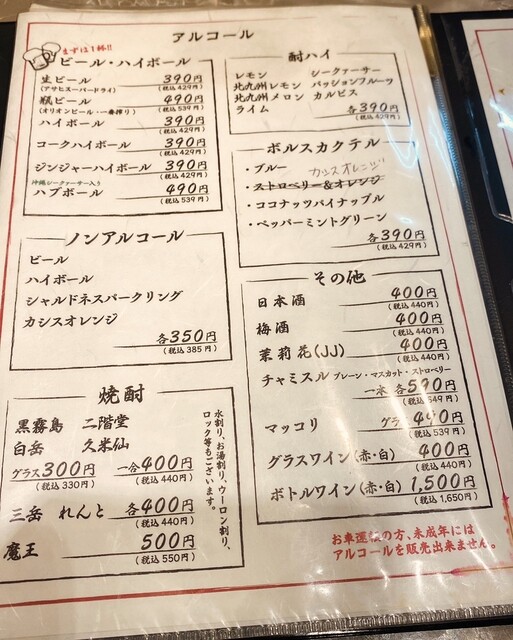 アルコール
まずは1杯!!
ビール・ハイボール
生ビール 390円
(アサヒスーパードライ) (税込429円)
瓶ビール 490円
(オリオンビール・一番搾り) (税込539円)
ハイボール 390円
(税込429円)
コークハイボール 390円
(税込429円)
ジンジャーハイボール 390円
(税込429円)
沖縄シークァーサー入り
ハブボール 490円
(税込539円)
ノンアルコール
ビール
ハイボール
シャルドネスパークリング
カシスオレンジ
各350円
(税込385円)
焼酎
黒霧島 二階堂
白岳 久米仙
グラス300円 一合400円
(税込330円) (税込440円)
三岳 れんと 各400円
(税込440円)
魔王 500円
(税込550円)
水割り、お湯割り、ウーロン割り、
ロック等もございます。
酎ハイ
レモン シークァーサー
北九州レモン パッションフルーツ
北九州メロン カルピス
ライム 各390円
(税込429円)
ボルスカクテル
・ブルー カシスオレンジ
・ストロベリー&オレンジ
・ココナッツパイナップル
・ペッパーミントグリーン
各390円
(税込429円)
その他
日本酒 400円
(税込440円)
梅酒 400円
(税込440円)
茉莉花(JJ) 400円
(税込440円)
チャミスル プレーン・マスカット・ストロベリー
一本 各590円
(税込649円)
マッコリ グラス 490円
(税込539円)
グラスワイン(赤・白) 400円
(税込440円)
ボトルワイン(赤・白) 1,500円
(税込1,650円)
お車運転の方、未成年には
アルコールを販売出来ません。